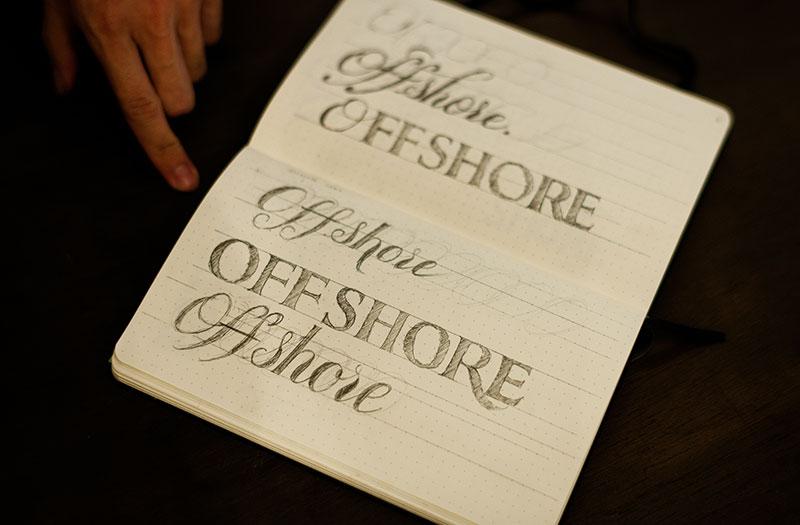 Offshore.
OFFSHORE
Offshore
OFFSHORE
Offshore